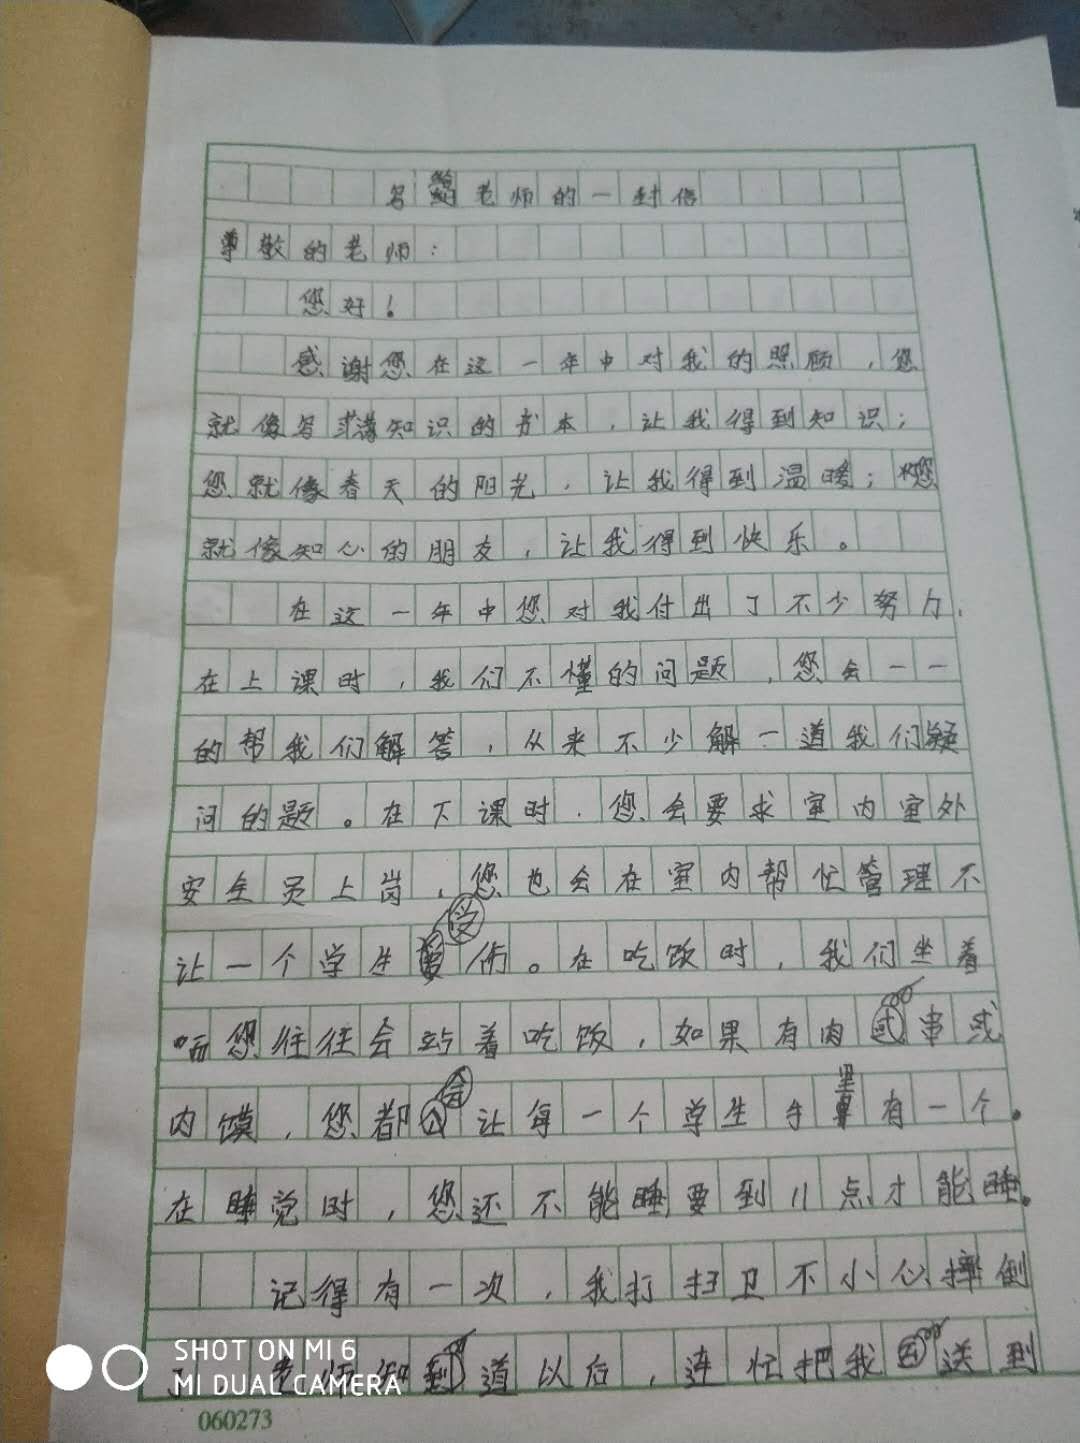 写给老师的一封信
尊敬的老师：
您好！
感谢您在这一年中对我的照顾，您
就像写满知识的书本，让我得到知识；
您就像春天的阳光，让我得到温暖；您
就像知心的朋友，让我得到快乐。
在这一年中您对我付出了不少努力，
在上课时，我们不懂的问题，您会一一
的帮我们解答，从来不少解一道我们疑
问的题。在下课时，您会要求室内室外
安全员上岗，您也会在室内帮忙管理不
让一个学生受伤。在吃饭时，我们坐着
而您往往会站着吃饭，如果有肉串或
肉馍，您都会让每一个学生手里有一个。
在睡觉时，您还不能睡要到11点才能睡。
记得有一次，我打扫卫不小心摔倒
了，老师知道以后，连忙把我送到
SHOT ON MI 6
MI DUAL CAMERA
060273